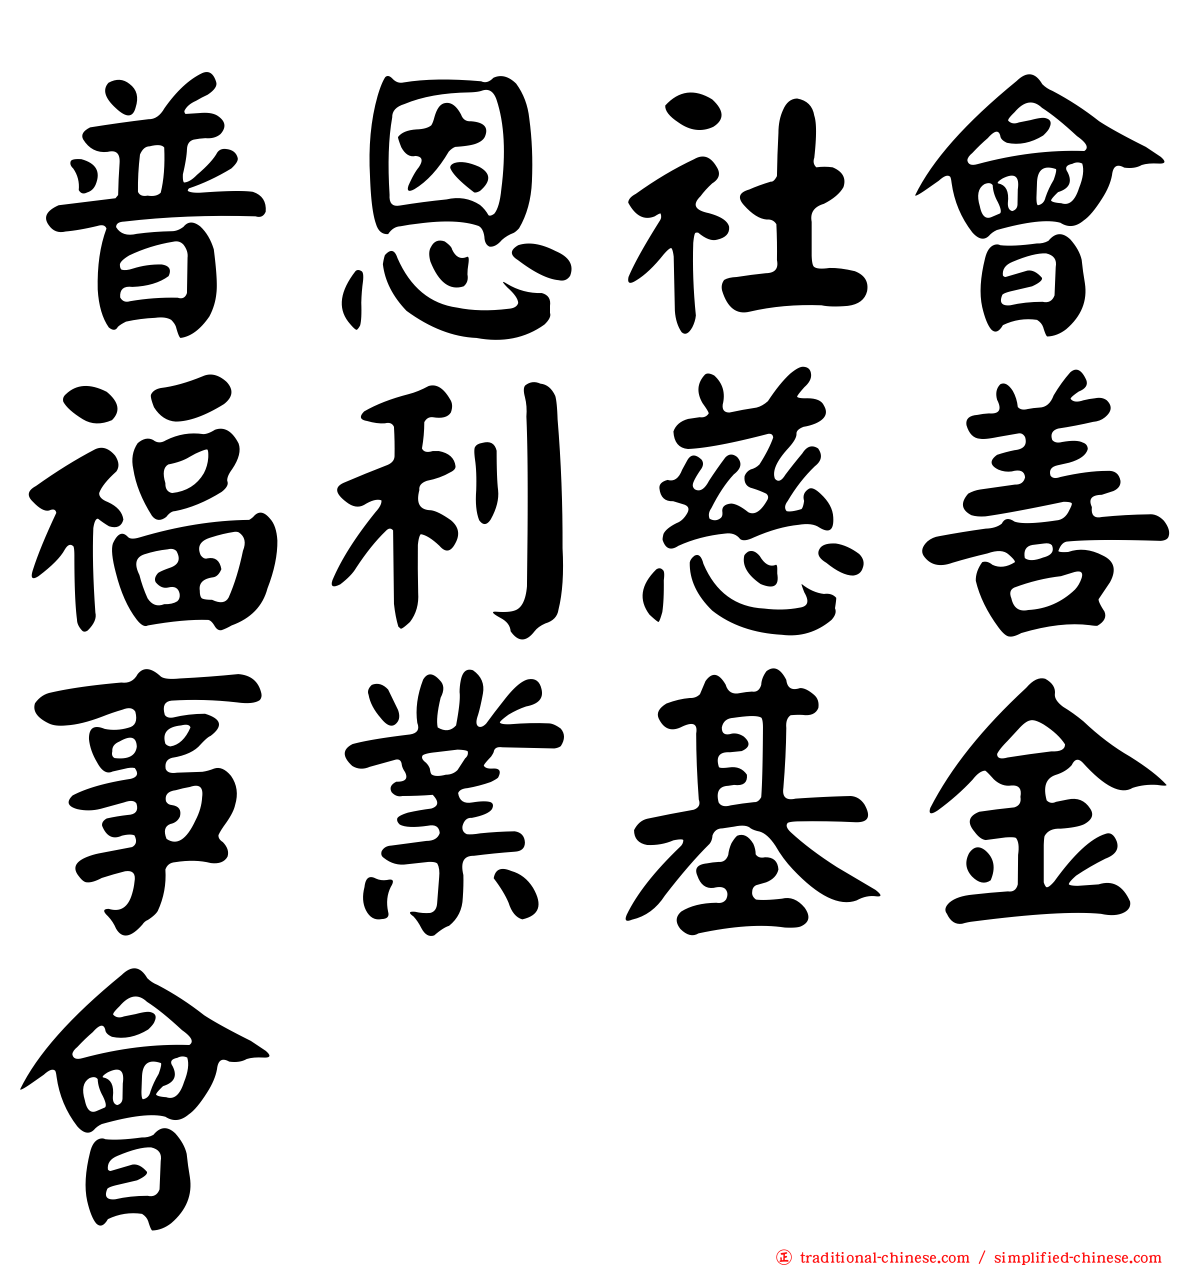 普恩社會
福利慈善
事業基金
會
正 traditional-chinese.com / simplified-chinese.com